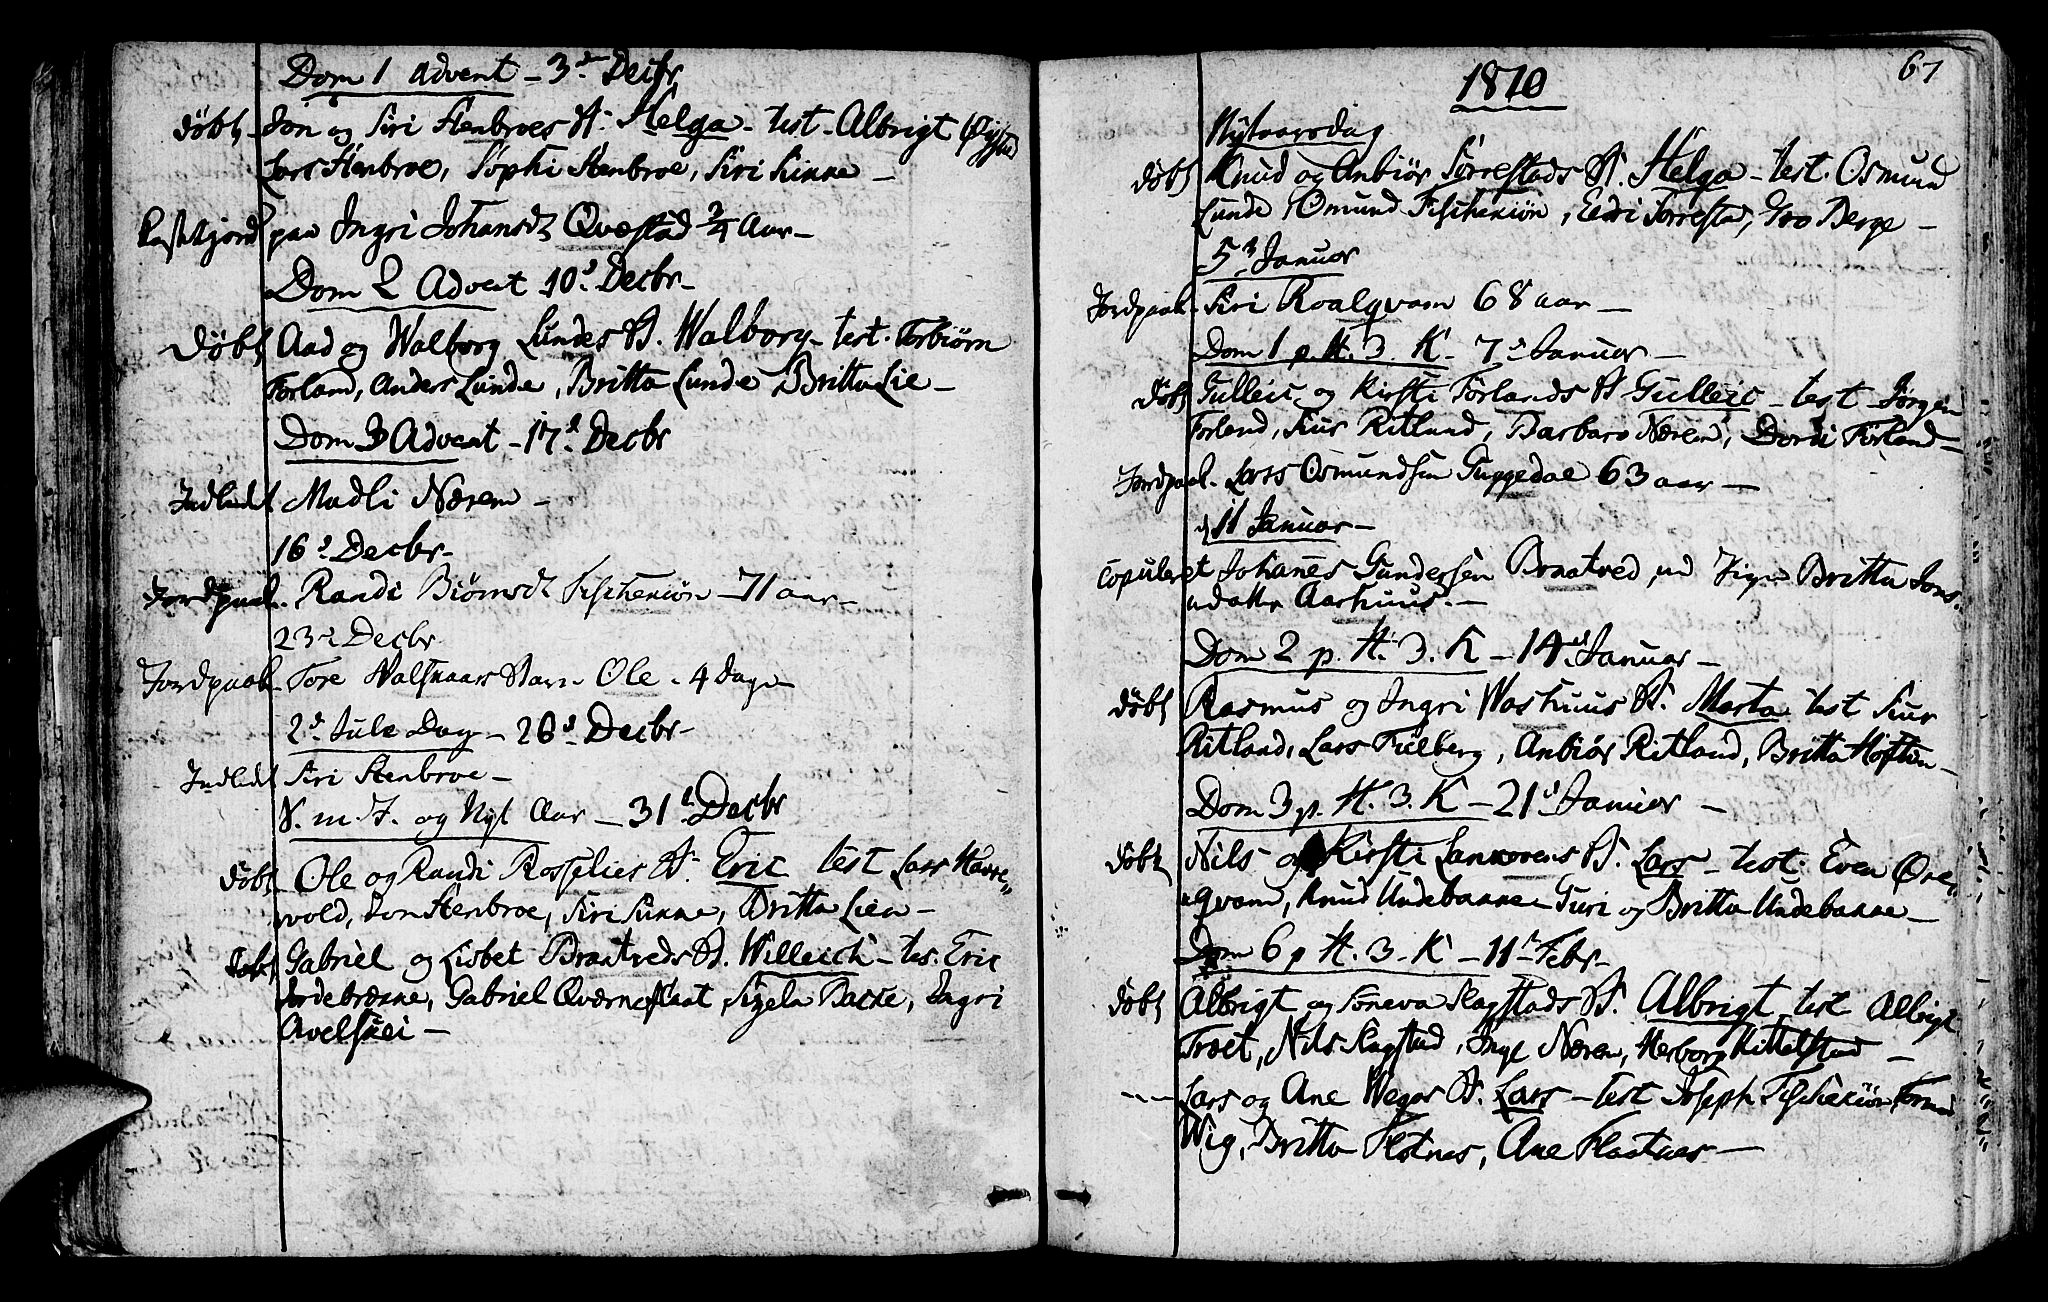 Dom 1 Advent - 3d Decbr
Døbt - Jon og Siri Stenbroes B. Helga - test - Albrigt Øigstad
Lars Stenbroe, Sophi Stenbroe, Siri Sinne -
Kastkjord paa Ingri Johansdt Qvæstad 3/4 Aar -
Dom 2 Advent 10d Decbr -
Døbt Aad og Walborg Lundes B. Walborg - test. Torbiørn
Torland, Anders Lunde, Britta Lunde Britta Lie -
Dom 3 Advent - 17d Decbr
Indledt Madli Næren -
16d Decbr -
Jordpaak. Randi Biørnsdt Fischeriøn - 71 aar -
23d Decbr
Jordpaak - Tore Walsnaas Barn Ole - 4 Dage
2d Jule Dag - 26d Decbr -
Indledt Siri Stenbroe -
S. m. J. og Nyt Aar - 31d Decbr
Døbt Ole og Randi Rosselies B. Eric test Lars Havre-
vold, Jon Stenbroe, Siri Sinne, Britta Lien -
Døbt Gabriel og Lisbet Braatveds B. Willeich - tes. Eric
Jordebrække, Gabriel Qværneflaat, Sizela Bakke, Ingri
Avelskei -
67
1810
Nytaarsdag
Døbt Knud og Anbiør Tørrestads B. Helga - test. Osmund
Lunde Omund Fischeriøn, Eldri Torrestad, Gro Berge -
5d Januar
Jordpaak - Siri Roalqvam 68 aar -
Dom 1 p. H. 3. K - 7d Januar -
Døbt Gulleic og Kirsti Førlands B Gulleic - test - Jørgen
Forland, Siur Ritland, Barbara Næren, Dordi Førland -
Jordpaak. Lars Osmundsen Guggedal 63 aar -
d 11 Januar -
Copuleret Johanes Gundersen Braatved, ud Pigen Britta Jons-
datter Aarhuus. -
Dom 2 p. H. 3. K - 14d Januar -
Døbt Rasmus og Ingri Washuus B. Marta test Siur
Ritland, Lars Tielberg, Anbiør Ritland, Britta Hoftun -
Dom 3 p. H. 3. K - 21d Januar -
Døbt Nils og Kirsti Lankorens B. Lars - test. Even Øre-
qvam, Knud Undebakke - Guri og Britta Undebakke -
Dom 6 p H. 3. K - 11d Febr -
Døbt Albrigt og Soneva Slagstads B. Albrigt test Albrigt
Troet, Nils Slagstad, Inge Næren, Herborg Kittelstad -
--- Lars og Ane Wegas B. Lars - test Joseph Fischeriøn
Wig, Britta Flotnes, Ane Flaatnes -